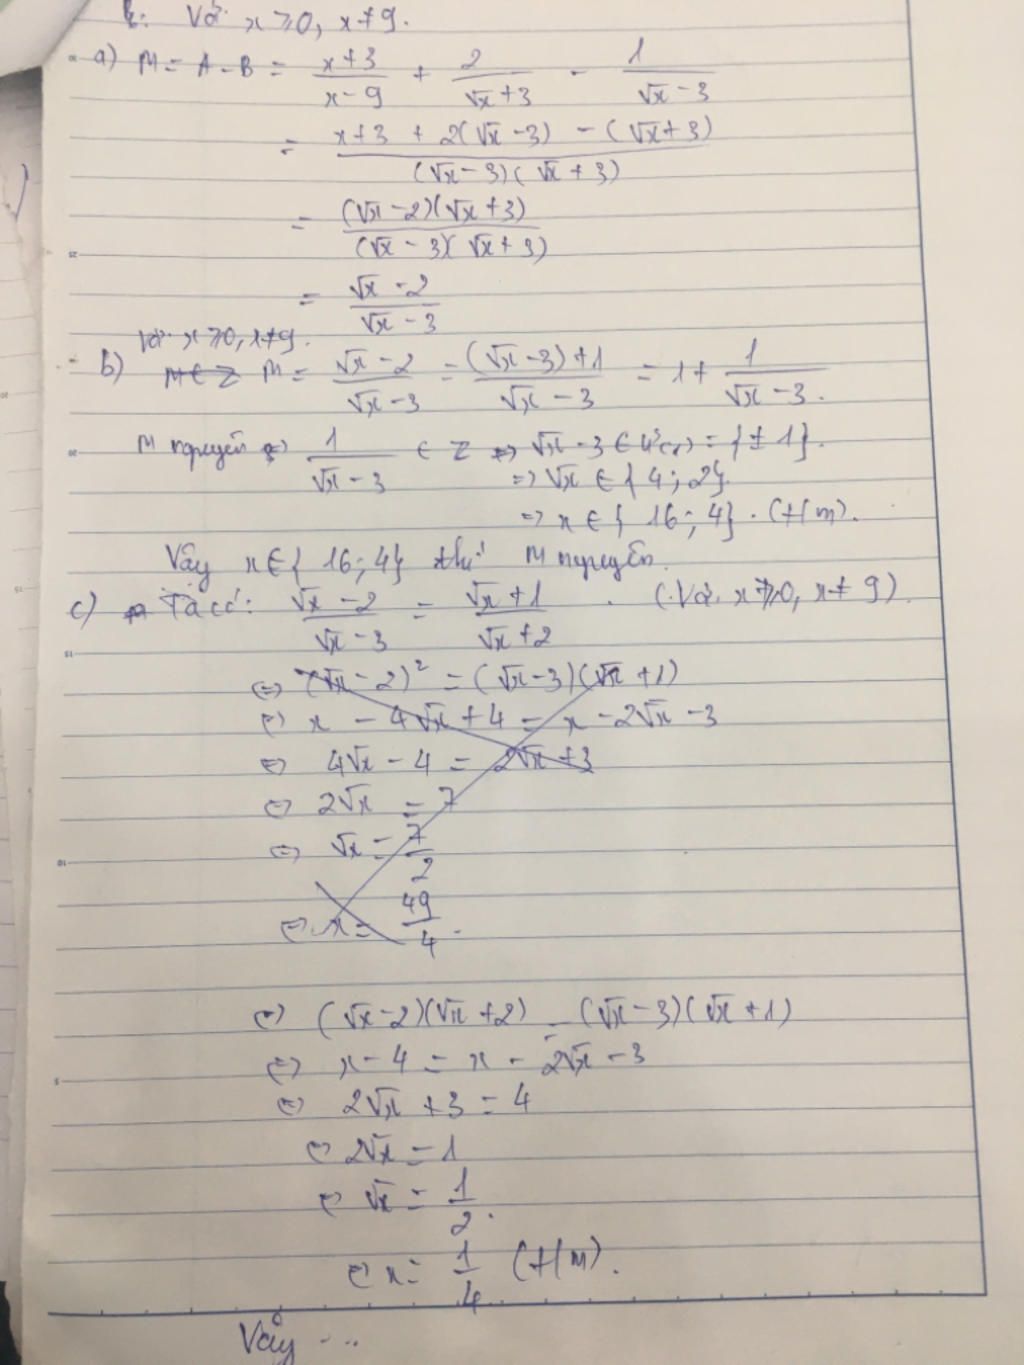 Với x ≥ 0, x ≠ 9.
a) M = A - B = \frac{x+3}{x-9} + \frac{2}{\sqrt{x}+3} - \frac{1}{\sqrt{x}-3}
= \frac{x+3+2(\sqrt{x}-3)-(\sqrt{x}+3)}{(\sqrt{x}-3)(\sqrt{x}+3)}
= \frac{(\sqrt{x}-2)(\sqrt{x}+3)}{(\sqrt{x}-3)(\sqrt{x}+3)}
= \frac{\sqrt{x}-2}{\sqrt{x}-3}
Với x ≥ 0, x ≠ 9.
b) M ∈ Z M = \frac{\sqrt{x}-2}{\sqrt{x}-3} = \frac{(\sqrt{x}-3)+1}{\sqrt{x}-3} = 1 + \frac{1}{\sqrt{x}-3}.
M nguyên ⇔ \frac{1}{\sqrt{x}-3} ∈ Z ⇒ \sqrt{x}-3 ∈ Ư(1) = {±1}.
⇒ \sqrt{x} ∈ {4; 2}.
⇒ x ∈ {16; 4}. (t/m).
Vậy x ∈ {16; 4} thì M nguyên.
c) Ta có: \frac{\sqrt{x}-2}{\sqrt{x}-3} = \frac{\sqrt{x}+1}{\sqrt{x}+2}. (Với x ≥ 0, x ≠ 9)
⇔ (\sqrt{x}-2)² = (\sqrt{x}-3)(\sqrt{x}+1)
⇔ x - 4\sqrt{x} + 4 = x - 2\sqrt{x} - 3
⇔ 4\sqrt{x} - 4 = 2\sqrt{x} + 3
⇔ 2\sqrt{x} = 7
⇔ \sqrt{x} = \frac{7}{2}
⇔ x = \frac{49}{4}.
⇔ (\sqrt{x}-2)(\sqrt{x}+2) = (\sqrt{x}-3)(\sqrt{x}+1)
⇔ x - 4 = x - 2\sqrt{x} - 3
⇔ 2\sqrt{x} + 3 = 4
⇔ 2\sqrt{x} = 1
⇔ \sqrt{x} = \frac{1}{2}.
⇔ x = \frac{1}{4} (t/m).
Vậy ...